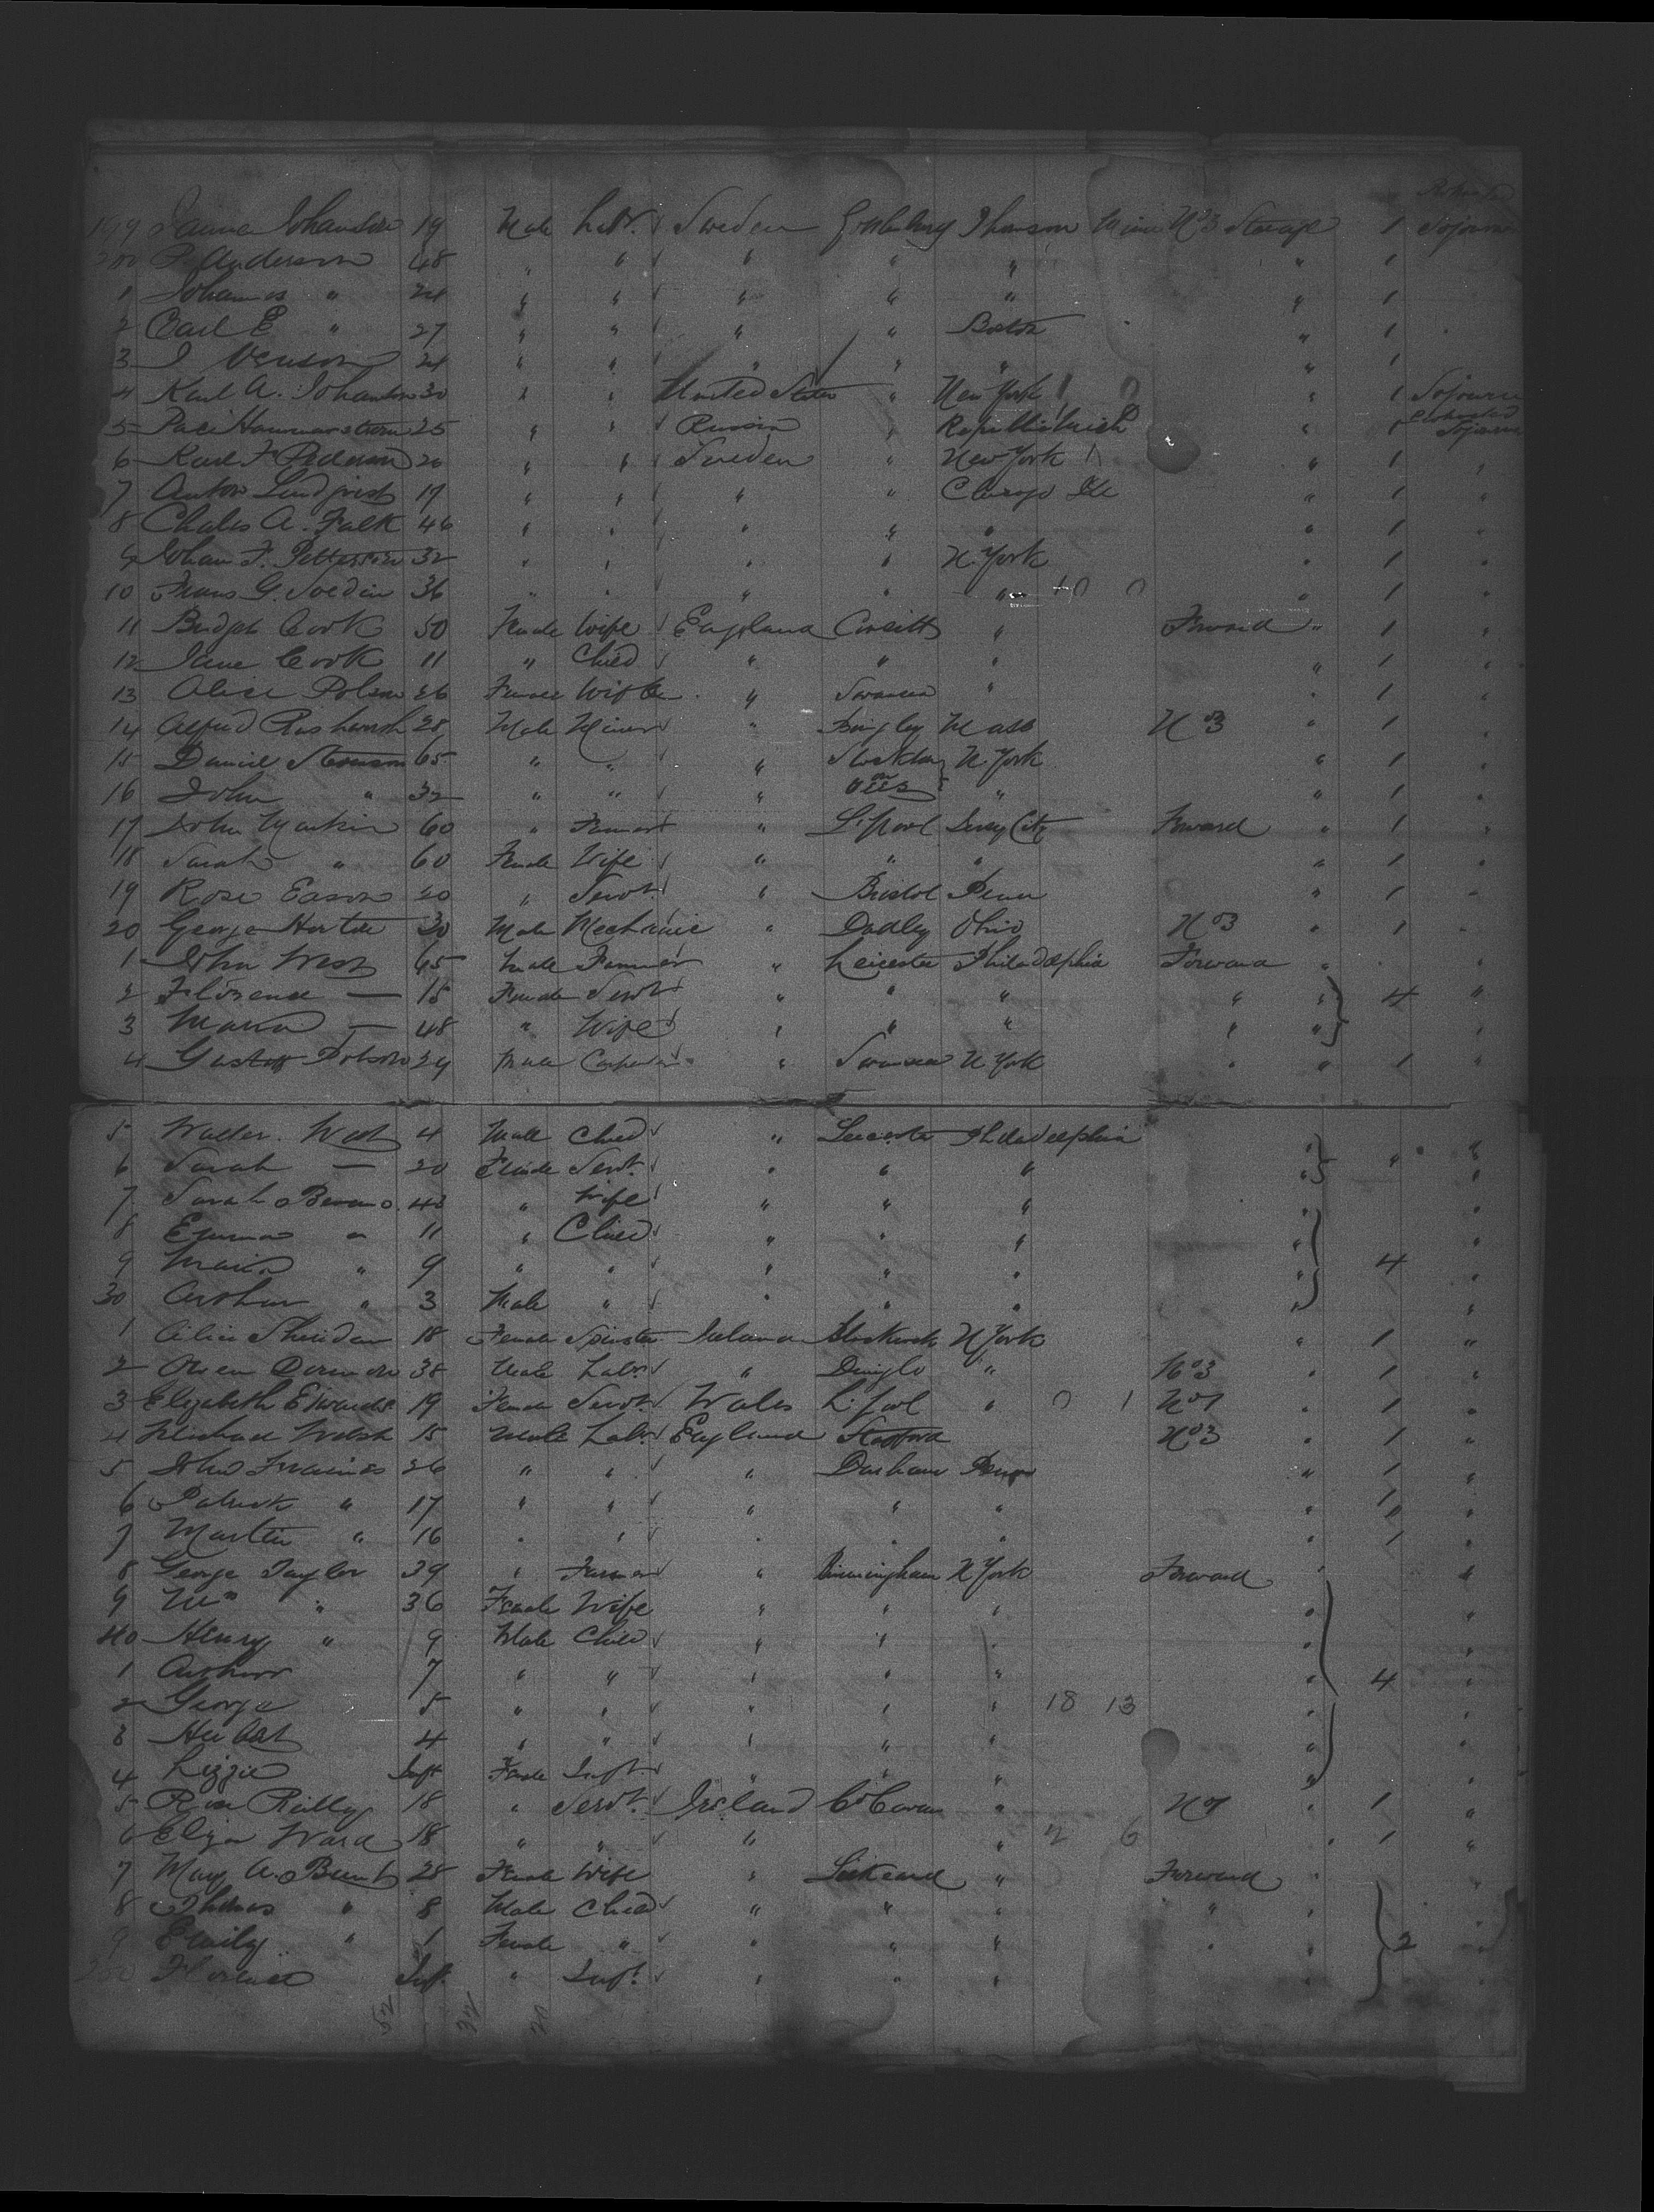 199 Johansson 19 Male Labr. Sweden Gothenburg Thomson Minn No 3 Steerage 1 Sojourn
200 P. Anderson 48 " " " " " " 1
1 Johannes " 24 " " " " " " 1
2 Carl E " 27 " " " " Boston " 1
3 J 24 " " " " " " 1
4 Karl A. Johanson 30 " " United States " New York " 1 Sojourn
5 Hammarstrom 25 " " Russia " " 1 Sojourn
6 Karl F. Pederson 20 " " Sweden " New York " 1 "
7 Anton Lindqvist 17 " " " " Chicago Ill " 1 "
8 Chales A. Falk 46 " " " " " " 1 "
9 Johan F. Pettersson 32 " " " " N. York " 1 "
10 Frans G. Swedin 36 " " " " " 10 0 " 1 "
11 Bridget Cook 50 Female Wife England " Forward " 1 "
12 Jane Cook 11 " Child " " " " 1 "
13 Alice 26 Female Wife " Swansea " " 1 "
14 Alfred Rushworth 28 Male Miner " Bingley Mass No 3 " 1 "
15 Daniel 65 " " " Stockton N. York " 1 "
16 John " 32 " " " on Tees " " 1 "
17 John 60 " Farmer " L'pool Jersey City Forward " 1 "
18 Sarah " 60 Female Wife " " " " 1 "
19 Rose Eason 20 " Servt. " Bristol Penn " 1 "
20 George Horton 30 Male Mechanic " Dudley Ohio No 3 " 1 "
1 John West 65 Male Farmer " Leicester Philadelphia Forward " "
2 Florence — 15 Female Servt " " " " " 4 "
3 Maria — 48 " Wife " " " " " "
4 Gustaf 29 Male Carpenter " Swansea N York " " 1 "
5 Walter West 4 Male Child " Leicester Philadelphia " " "
6 Sarah — 20 Female Servt. " " " " "
7 Sarah 42 " Wife " " " " "
8 Emma " 11 " Child " " " " "
9 Maria " 9 " " " " " " 4 "
30 Arthur " 3 Male " " " " " "
1 Alice Sheridan 18 Female Spinster Ireland N York " 1 "
2 Owen 38 Male Labr. " Dingle " No 3 " 1 "
3 Elizabeth Edwards 19 Female Servt. Wales L'pool " 0 1 No 1 " 1 "
4 Michael Welsh 15 Male Labr. England Stafford No 3 " 1 "
5 John 26 " " " Durham Penn " 1 "
6 Patrick " 17 " " " " " " 1 "
7 Martin " 16 " " " " " " 1 "
8 George Taylor 39 " Farmer " Birmingham N York Forward " "
9 Mrs " 36 Female Wife " " " " "
40 Henry " 9 Male Child " " " " "
1 Arthur 7 " " " " " " 4 "
2 George 5 " " " " " 18 13 " "
3 Herbert 4 " " " " " " "
4 Lizzie Inft Female Inft. " " " " "
5 Rose Reilly 18 " Servt. Ireland Co Cavan " " 1 "
6 Eliza Ward 18 " " " " 2 6 " 1 "
7 Mary A. 28 Female Wife " Liskeard " Forward " "
8 Thomas " 8 Male Child " " " " " "
9 Emily " 1 Female " " " " " " 2 "
250 Florence Inf. " Inft. " " " "
52 32 20